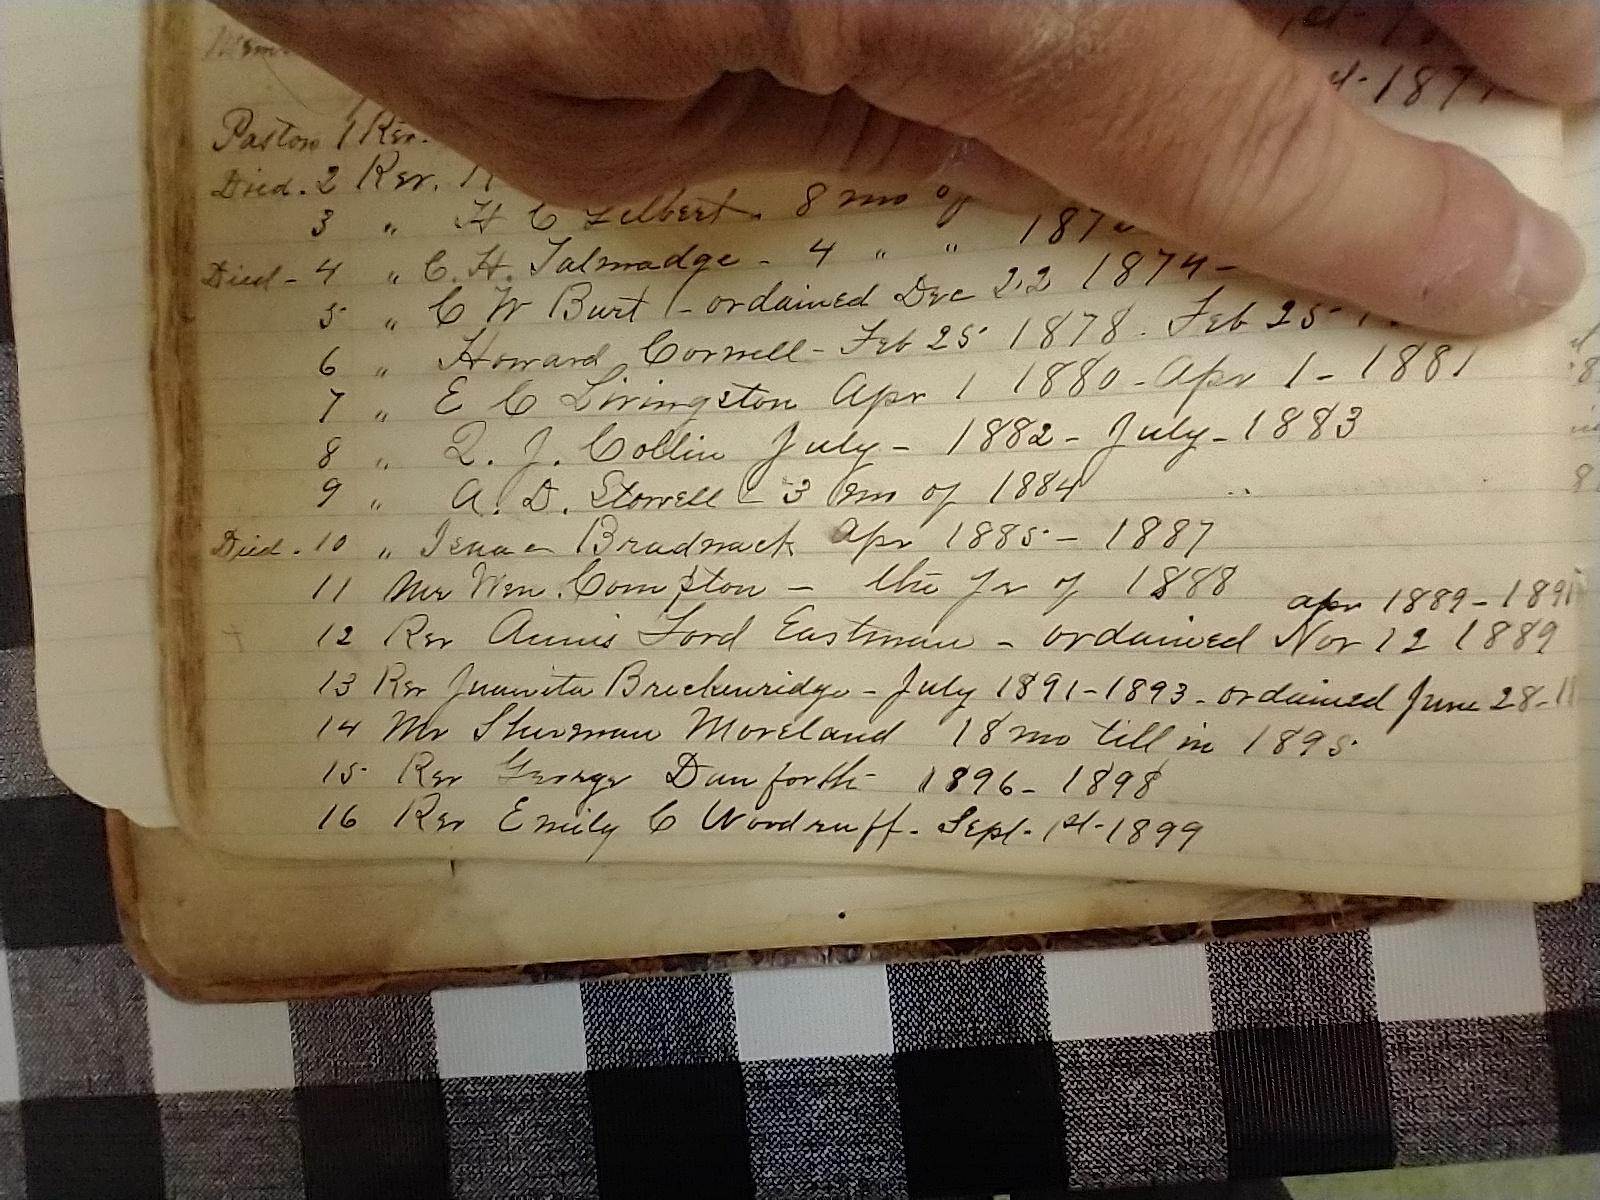 Pastor 1 Rev.
Died. 2 Rev. H
3 " H C Gilbert. 8 mo of
Died - 4 " C. H. Talmadge - 4 " " 187
5 " C W Burt - ordained Dec 22 1874 -
6 " Howard Cornell - Feb 25 1878. Feb 25 -
7 " E C Livingston Apr 1 1880 - Apr 1 - 1881
8 " Q. J. Collin July - 1882 - July - 1883
9 " A. D. Stowell - 3 mo of 1884
Died. 10 " Isaac Bradnack Apr 1885 - 1887
11 Mr Wm. Compton - the yr of 1888
apr 1889 - 1891
12 Rev Annis Ford Eastman - ordained Nov 12 1889
13 Rev Juanita Breckenridge - July 1891 - 1893 - ordained June 28 -
14 Mr Sherman Moreland 18 mo till in 1895
15 Rev George Danforth 1896 - 1898
16 Rev Emily C Woodruff. Sept. 1st - 1899